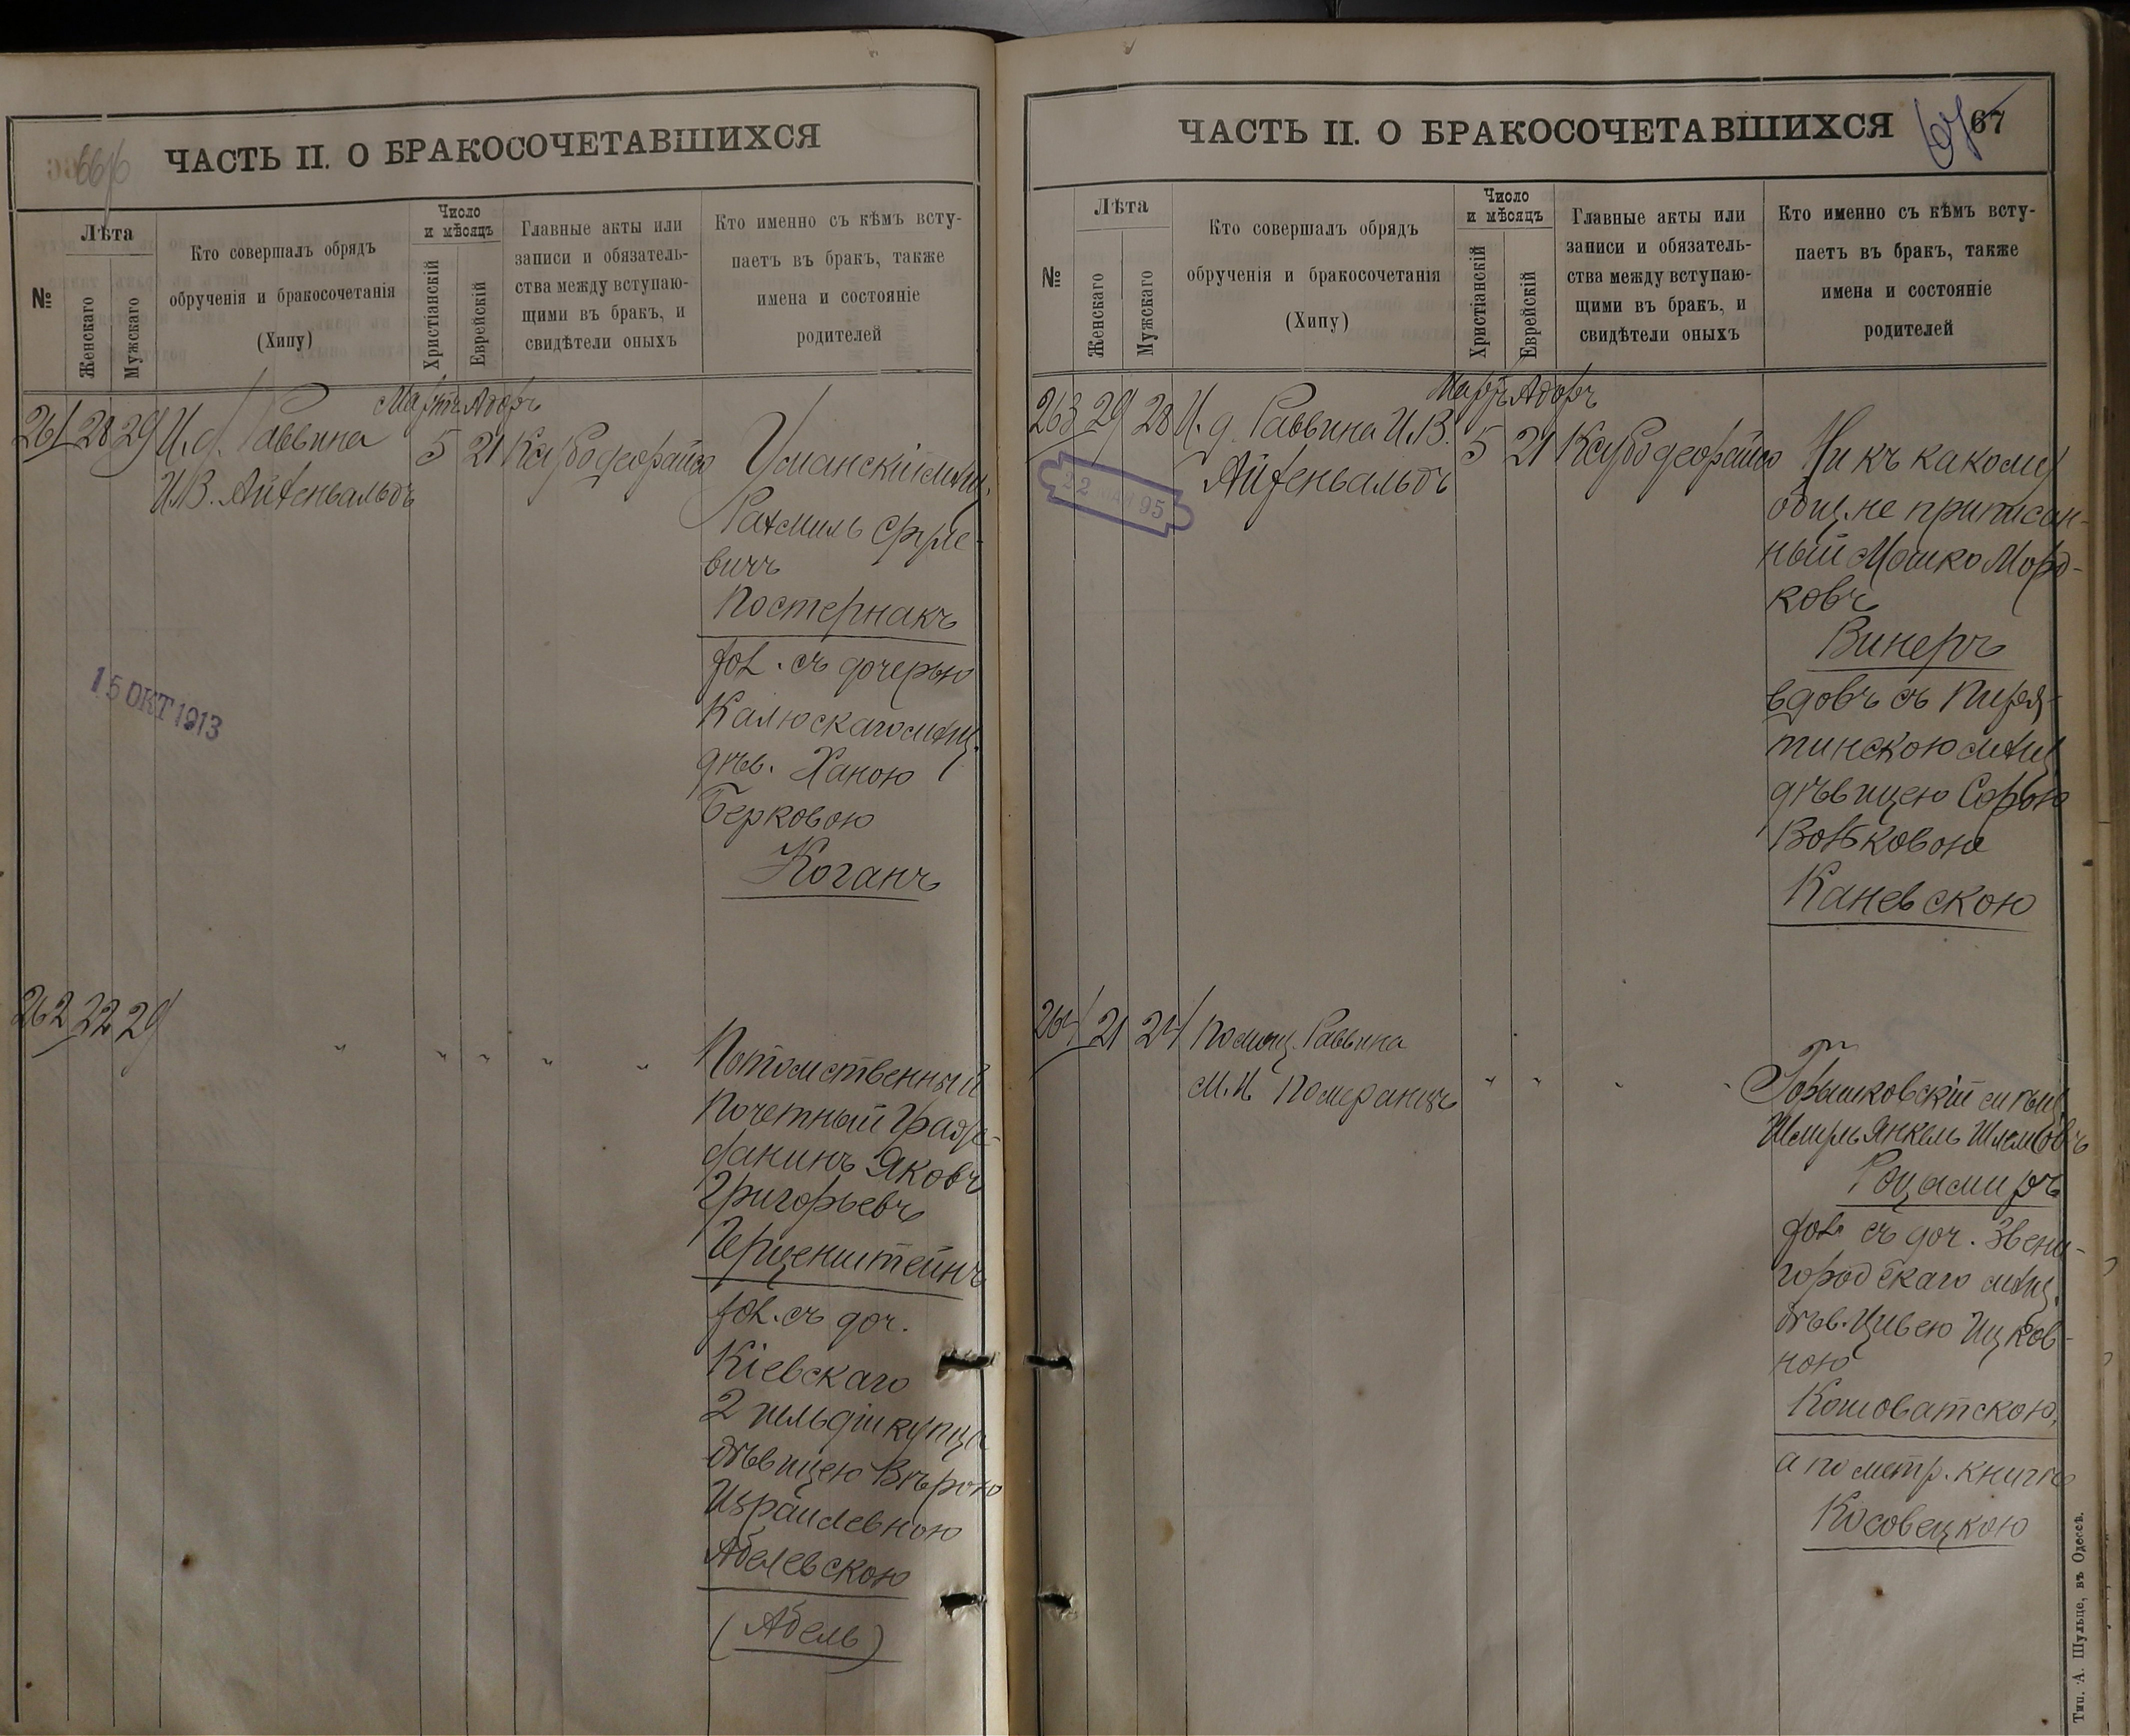 ЧАСТЬ II. О БРАКОСОЧЕТАВШИХСЯ
№
Лѣта
Женскаго
Мужскаго
Кто совершалъ обрядъ
обрученія и бракосочетанія
(Хипу)
Число
и мѣсяцъ
Христіанскій
Еврейскій
Главные акты или
записи и обязатель-
ства между вступаю-
щими въ бракъ, и
свидѣтели оныхъ
Кто именно съ кѣмъ всту-
паетъ въ бракъ, также
имена и состояніе
родителей
261 28 29
И. д. Раввина
И.В. Айхенвальдъ
Мартъ Адоръ
5 21
Уманскій мѣщ.
Рахмиль
вичъ
Постернакъ
хол. съ дочерью
Калюскаго мѣщ.
дѣв. Ханою
Берковою
Коганъ
15 ОКТ 1913
262 22 29
" " " " "
Потомственный
Почетный Граж-
данинъ Яковъ
Григорьевъ
Герценштейнъ
хол. съ доч.
Кіевскаго
2 гильдіи купца
дѣвицею Вѣрою
Израилевною
Абелевскою
(Абель)
ЧАСТЬ II. О БРАКОСОЧЕТАВШИХСЯ
67
№
Лѣта
Женскаго
Мужскаго
Кто совершалъ обрядъ
обрученія и бракосочетанія
(Хипу)
Число
и мѣсяцъ
Христіанскій
Еврейскій
Главные акты или
записи и обязатель-
ства между вступаю-
щими въ бракъ, и
свидѣтели оныхъ
Кто именно съ кѣмъ всту-
паетъ въ бракъ, также
имена и состояніе
родителей
263 29 28
И. д. Раввина И.В.
Айхенвальдъ
Мартъ Адоръ
5 21
22 95
Ни къ какому
общ. не приписан-
ный Мошко Морд-
ковъ
Винеръ
вдовъ съ Пиря-
тинскою мѣщ.
дѣвицею Сорою
Вольковою
Каневскою
264 21 24
Помощ. Раввина
М. И. Померанцъ
" " " "
Горышковскій мѣщ.
Шмуль Янкель Шлемовъ
хол. съ доч. Звени-
городскаго мѣщ.
дѣв. Цивею Ицков-
ною
Кошоватскою,
а по метр. книгѣ
Косовецкою
Тип. А. Шульце, въ Одессѣ.